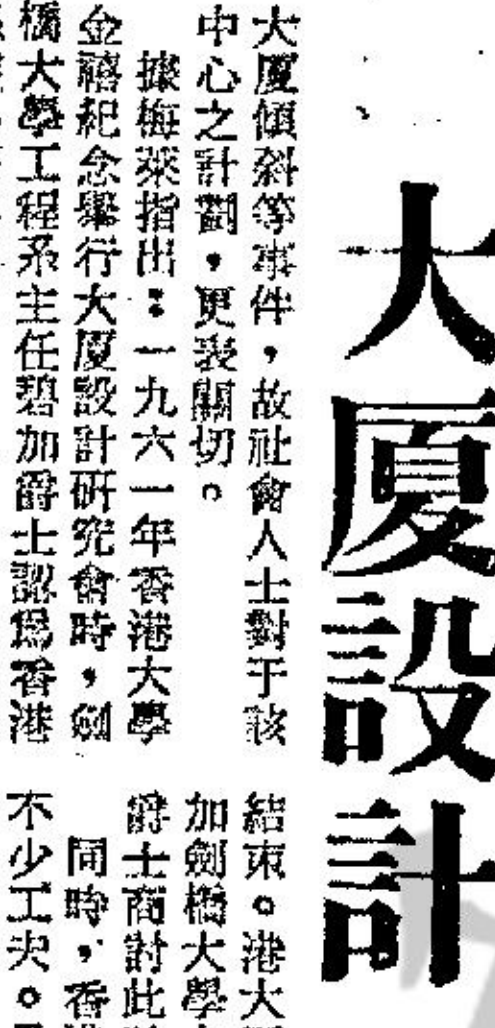 大厦設計
大厦傾斜等事件，故社會人士對于該
中心之計劃，更表關切。
據梅萊指出：一九六一年香港大學
金禧紀念舉行大厦設計研究會時，劍
橋大學工程系主任碧加爵士認爲香港
結束。港大
加劍橋大學
爵士商討此
同時，香港
不少工夫。